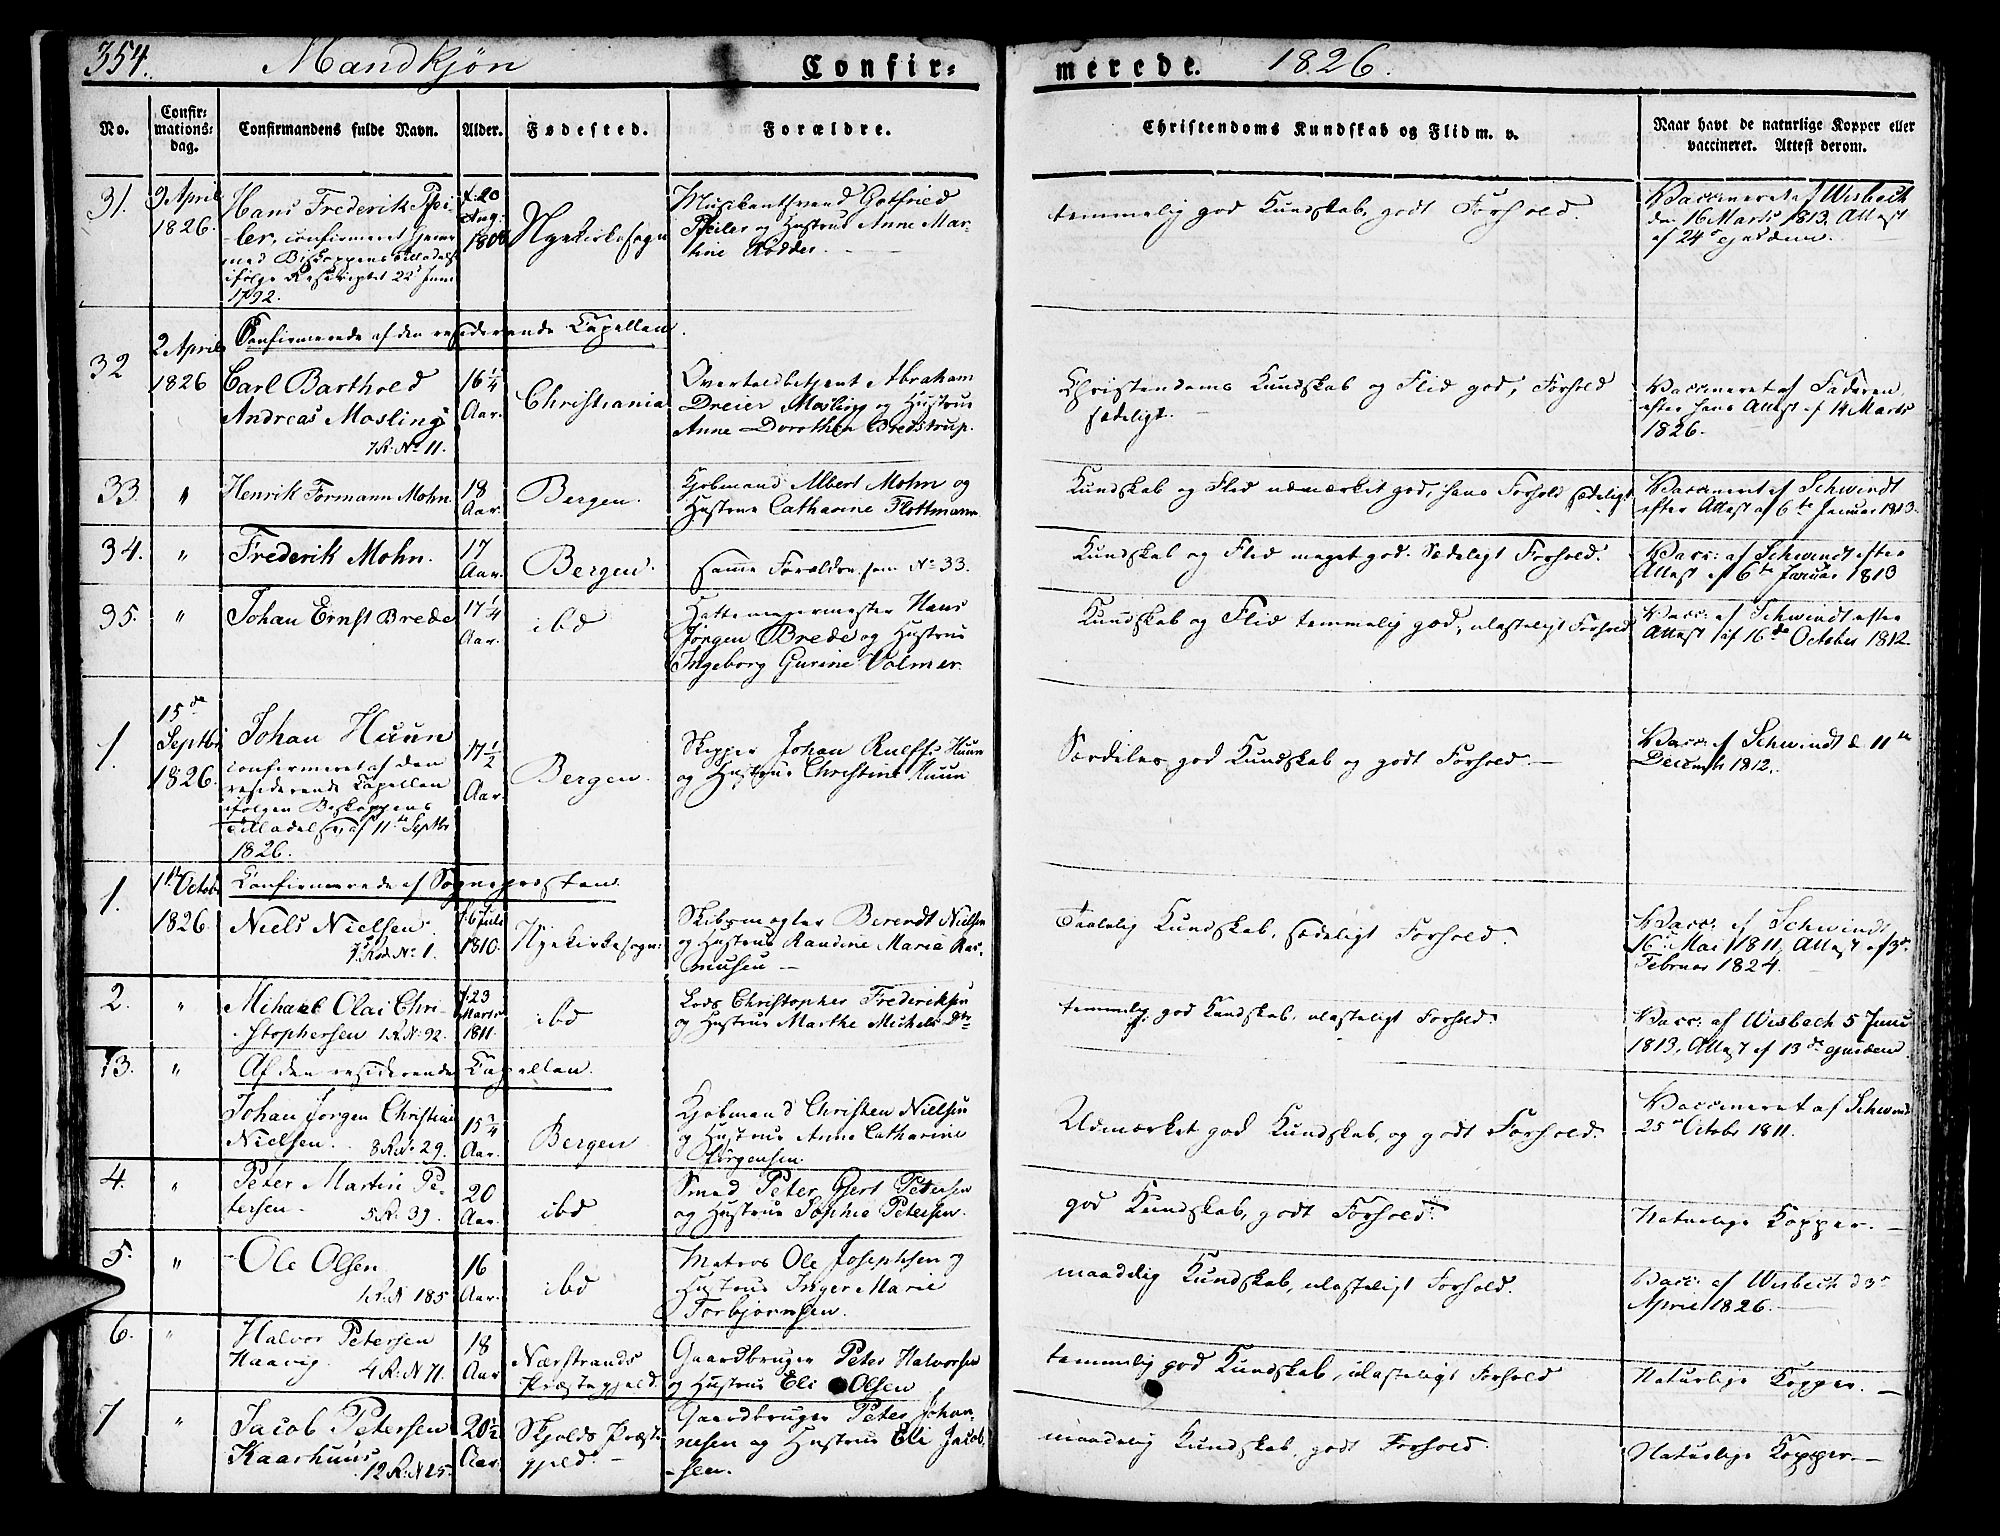 354. Mandkjøn Confir-
merede. 1826.
No.
Confir-
mations-
dag.
Confirmandens fulde Navn.
Alder.
Fødested.
Forældre.
Christendoms Kundskab og Flid m. v.
Naar havt de naturlige Kopper eller
vaccineret. Attest derom.
31.
2 April
1826.
Hans Frederik Pfei
-ler, confirmeret hjemme
med Biskoppens Tilladelse
ifølge Rescriptet 22 Juni
1792.
f. 20
Aug:
Nyekirkesogn
Musikantsvend Gotfried
Pfeiler og Hustrue Anne Mar-
tine Rødder.
temmelig god Kundskab, godt Forhold.
Vaccineret af Wisbech
den 16 Marts 1813. Attest
af 24 ejusdem.
Confirmerede af den residerende Capellan.
32
2 April
1826
Carl Barthold
Andreas Mosling
7 R. No 11.
16 1/4
Aar.
Christiania
Overtoldbetjent Abraham
Dreier Mosling og Hustrue
Anne Dorothea Bredstrup.
Christendoms Kundskab og Flid god, Forhold
sædeligt.
Vaccineret af Faderen
efter hans Attest af 14 Marts
1826.
33.
"
Henrik Formann Mohn.
18
Aar.
Bergen.
Kjøbmand Albert Mohn og
Hustrue Catharine Flottmann
Kundskab og Flid udmærket god, hans Forhold sædeligt.
Vaccineret af Schwindt
efter Attest af 6te Januar 1813.
34.
"
Frederik Mohn.
17
Aar.
Bergen.
samme Forældre som No 33.
Kundskab og Flid meget god. Sædeligt Forhold.
Vacc: af Schwindt efter
Attest af 6te Januar 1813
35.
"
Johan Ernst Brede
17 1/4
Aar.
ibd
Hattemagermester Hans
Jørgen Brede og Hustrue
Ingeborg Gurine Volmer.
Kundskab og Flid temmelig god, ulasteligt Forhold
Vacc: af Schwindt efter
Attest af 16de October 1812.
1.
15de
Septbr
1826.
Johan Huun
confirmeret af den
residerende Capellan
ifølgen Biskoppens
Tilladelse af 11te Septbr
1826.
17 1/2
Aar.
Bergen.
Skipper Johan Roelfs Huun
og Hustrue Christine Huun
Særdeles god Kundskab og godt Forhold.
Vacc: af Schwindt d. 11te
Decembr 1812.
Confirmerede af Sognepræsten.
1.
1te Octobr
1826.
Niels Nielsen.
No 1.
f: 6 Juli
1810.
Nyekirkesogn.
Skibsmægler Berendt Nielsen
og Hustrue Randine Marie Ras-
musen
Taalelig Kundskab, sædeligt Forhold.
Vacc: af Schwindt
16 Mai 1811, Attest af 3
Februar 1824.
2.
"
Michael Olai Chri-
stophersen 1 R. N: 92.
f: 23
Marts
1811.
ibd
Lods Christopher Frederiksen
og Hustrue Marthe Michels Dtr
temmelig god Kundskab, ulasteligt Forhold.
Vacc: af Wisbech 5 Juni
1813, Attest af 13de ejusdem.
Af den residerende Capellan.
3.
"
Johan Jørgen Christian
Nielsen. 8 R. N: 29.
15 3/4
Aar.
Bergen
Kjøbmand Christen Nielsen
og Hustrue Anne Catharine
Jørgensen.
Udmærket god Kundskab, og godt Forhold.
Vaccineret af Schwindt
25 Octobr 1811.
4.
"
Peter Martin Pe-
tersen. 5 R: 39.
20
Aar.
ibd
Smed Peter Gjert Petersen
og Hustrue Sophie Petersen.
god Kundskab, godt Forhold.
Naturlige Kopper.
5.
"
Ole Olsen
1 R. N 185
16
Aar.
ibd
Matros Ole Josephsen og
Hustrue Inger Marie
Torbjørnsen.
maadelig Kundskab, ulasteligt Forhold.
Vacc: af Wisbech d 3
April 1826.
6.
"
Halvor Petersen
Haavig. 4 R: N 71.
18
Aar
Nærstrands
Præstegjeld.
Gaardbruger Peter Halvorsen
og Hustrue Eli Olsen
temmelig god Kundskab, ulasteligt Forhold
Naturlige Kopper.
7
"
Jacob Petersen
Kaarhuus. 12 R: N 25.
20 1/2
Aar.
Skjolds Præste-
gjeld.
Gaardbruger Peter Johan-
nesen og Hustrue Eli Jacob
-sen.
maadelig Kundskab, godt Forhold.
Naturlige Kopper.